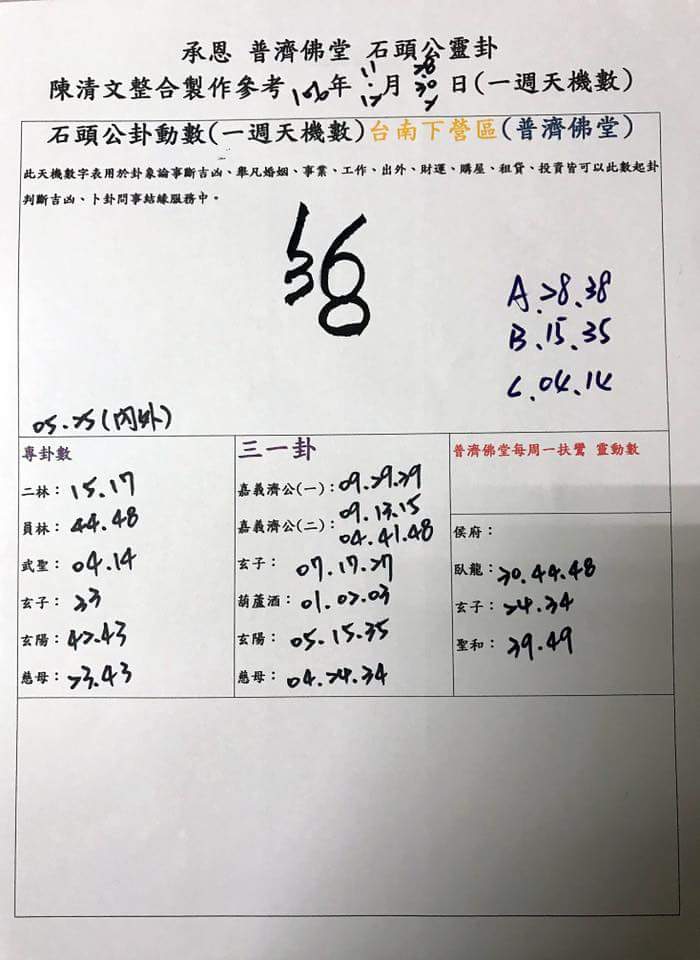 承恩 普濟佛堂 石頭公靈卦
陳清文整合製作參考106年11.12月28.30.2日(一週天機數)
石頭公卦動數(一週天機數)台南下營區(普濟佛堂)
此天機數字表用於卦象論事斷吉凶、舉凡婚姻、事業、工作、出外、財運、購屋、租賃、投資皆可以此數起卦
判斷吉凶、卜卦問事結緣服務中。
A.28.38
B.15.35
C.04.14
05.25(內外)
專卦數
二林：15.17
員林：44.48
武聖：04.14
玄子：33
玄陽：42.43
慈母：23.43
三一卦
嘉義濟公(一)：09.29.39
嘉義濟公(二)：09.13.15
04.41.48
玄子：07.17.27
葫蘆酒：01.02.03
玄陽：05.15.35
慈母：04.24.34
普濟佛堂每周一扶鸞 靈動數
侯府：
臥龍：20.44.48
玄子：24.34
聖和：39.49